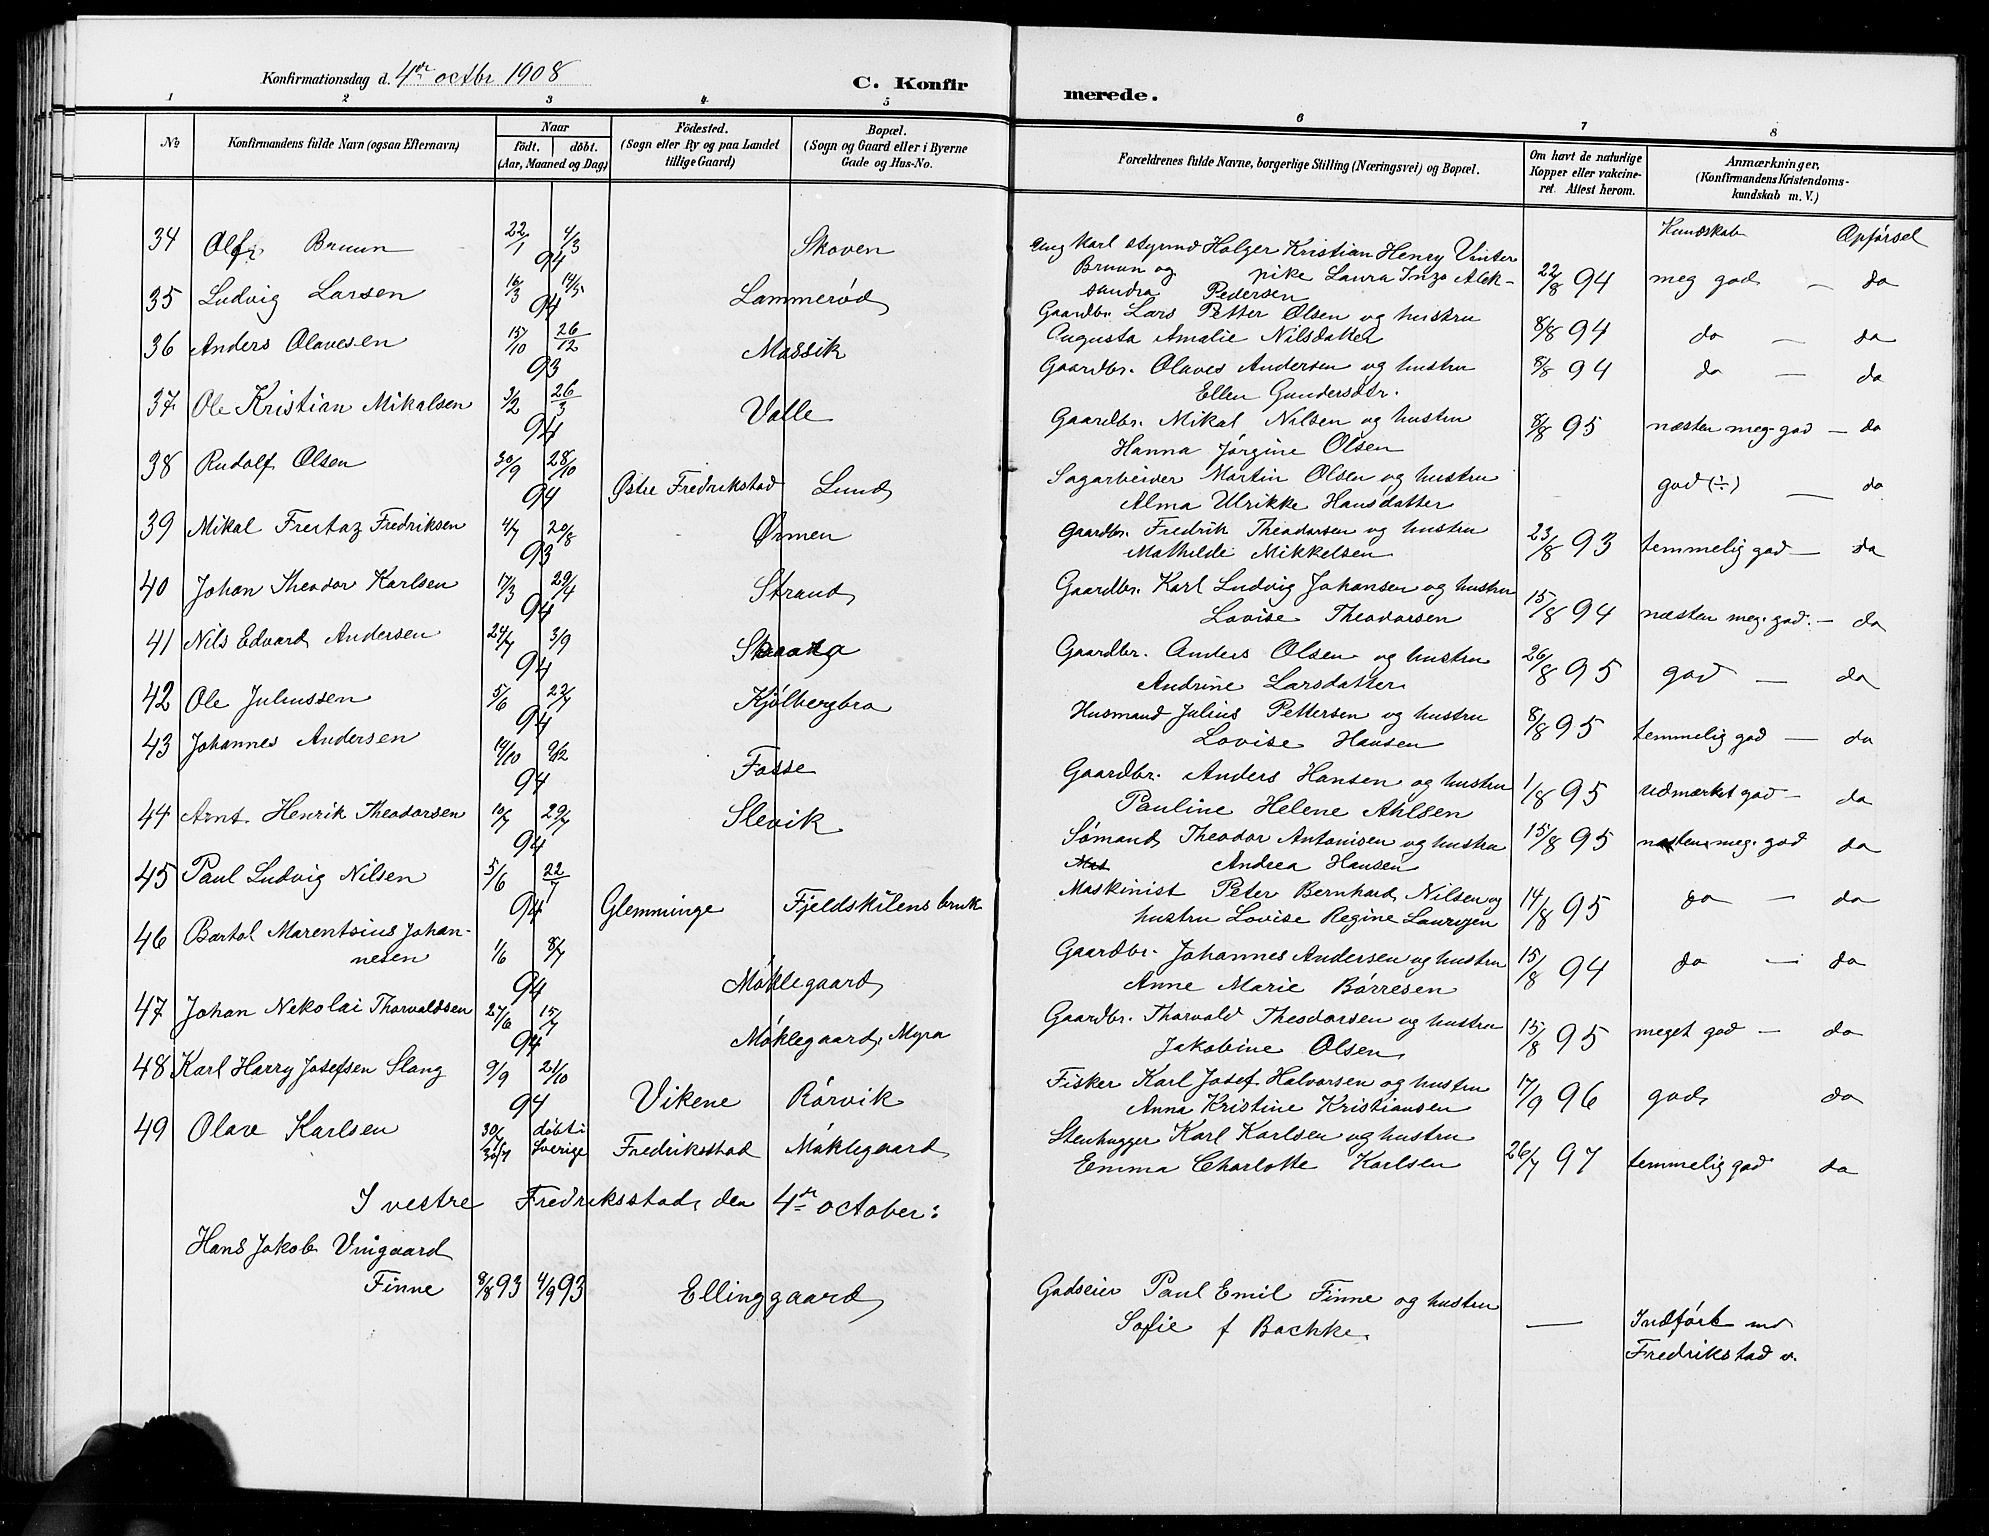 Konfirmationsdag d. 4de octbr 1908
C. Konfir merede.
1 2 3 4 5 6 7 8
No
Konfirmandens fulde Navn (ogsaa Efternavn)
Naar
födt. döbt.
(Aar, Maaned og Dag)
Födested.
(Sogn eller By og paa Landet
tillige Gaard)
Bopæl.
(Sogn og Gaard eller i Byerne
Gade og Hus-No.
Forældrenes fulde Navne, borgerlige Stilling (Næringsvei) og Bopæl.
Om havt de naturlige
Kopper eller vakcine-
ret. Attest herom.
Anmærkninger,
(Konfirmandens Kristendoms-
kundskab m. V.)
Kundskab Opførsel
34 Olf Bruun 22/1 4/3 94 Skoven
Ung Karl styrmd Holger Kristian Henry Vinter
Bruun og pike Laura Inga Alek-
sandra Pedersen 22/8 94 meg god — do
35 Ludvig Larsen 16/3 14/5 94 Lammerød
Gaardbr. Lars Petter Olsen og hustru
Augusta Amalie Nilsdatter 8/8 94 do — do
36 Anders Olavesen 15/10 26/12 93 Massik
Gaardbr. Olaves Andersen og hustru
Ellen Gundersdtr. 8/8 94 do — do
37 Ole Kristian Mikalsen 3/2 26/3 94 Valle
Gaardbr. Mikal Nilsen og hustru
Hanna Jørgine Olsen 8/8 95 næsten meg. god — do
38 Rudolf Olsen 30/9 28/10 94 Østre Fredrikstad Lund
Sagarbeider Martin Olsen og hustru
Alma Ulrikke Hansdatter god (÷) — do
39 Mikal Freitaz Fredriksen 4/7 20/8 93 Ørmen
Gaardbr. Fredrik Theodorsen og hustru
Mathilde Mikkelsen 23/8 93 temmelig god — do
40 Johan Theodor Karlsen 17/3 29/4 94 Strand
Gaardbr. Karl Ludvig Johansen og hustru
Lovise Theodorsen 15/8 94 næsten meg. god. — do
41 Nils Edvard Andersen 24/7 3/9 94
Gaardbr. Anders Olsen og hustru
Andrine Larsdatter 26/8 95 god — do
42 Ole Juliussen 5/6 22/7 94 Kjølbergbro
Husmand Julius Pettersen og hustru
Lovise Hansen 8/8 95 temmelig god — do
43 Johannes Andersen 14/10 9/12 94 Fosse
Gaardbr. Anders Hansen og hustru
Pauline Helene Ahlsen 1/8 95 udmærket god — do
44 Arnt Henrik Theodorsen 10/7 29/7 94 Slevik
Sømand Theodor Antonisen og hustru
Andrea Hansen 15/8 95 næsten meg. god do
45 Paul Ludvig Nilsen 5/6 22/7 94 Glemminge Fjeldskilens bruk
Maskinist Peter Bernhard Nilsen og
hustru Lovise Regine Lauritzen 14/8 95 do — do
46 Bartol Marentsius Johan-
nesen 1/6 8/7 94 Møklegaard
Gaardbr. Johannes Andersen og hustru
Anne Marie Børresen 15/8 94 do — do
47 Johan Nekolai Thorvaldsen 27/6 15/7 94 Møklegaard, Myra
Gaardbr. Thorvald Theodorsen og hustru
Jakobine Olsen 15/8 95 meget god — do
48 Karl Harry Josefsen Slang 9/9 21/10 94 Vikene Rørvik
Fisker Karl Josef Halvorsen og hustru
Anna Kristine Kristiansen 17/9 96 god do
49 Olav Karlsen døbt i
Sverige Fredriksstad Møklegaard
Stenhugger Karl Karlsen og hustru
Emma Charlotte Karlsen 26/7 97 temmelig god do
I vestre Fredriksstad, den 4de october:
Hans Jakob Vingaard
Finne 8/8 93 4/9 93 Ellinggaard
Godseier Paul Emil Finne og hustru
Sofie f Bachke. — Indført
Fredrikstad v.